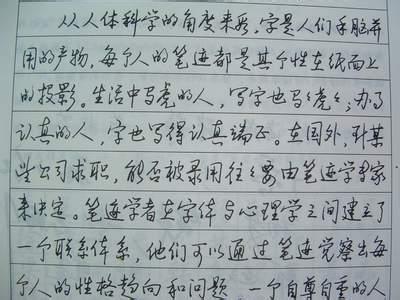 从人体科学的角度来看,字是人们手脑并
用的产物,每个人的笔迹都是其个性在纸面上
的投影。生活中马虎的人,写字也马々虎々;办事
认真的人,字也写得认真端正。在国外,到某
些公司求职,能否被录用往々要由笔迹学专家
来决定。笔迹学者在字体与心理学之间建立了
一个联系体系,他们可以通过笔迹觉察出每
个人的性格趋向和问题,一个自尊自重的人